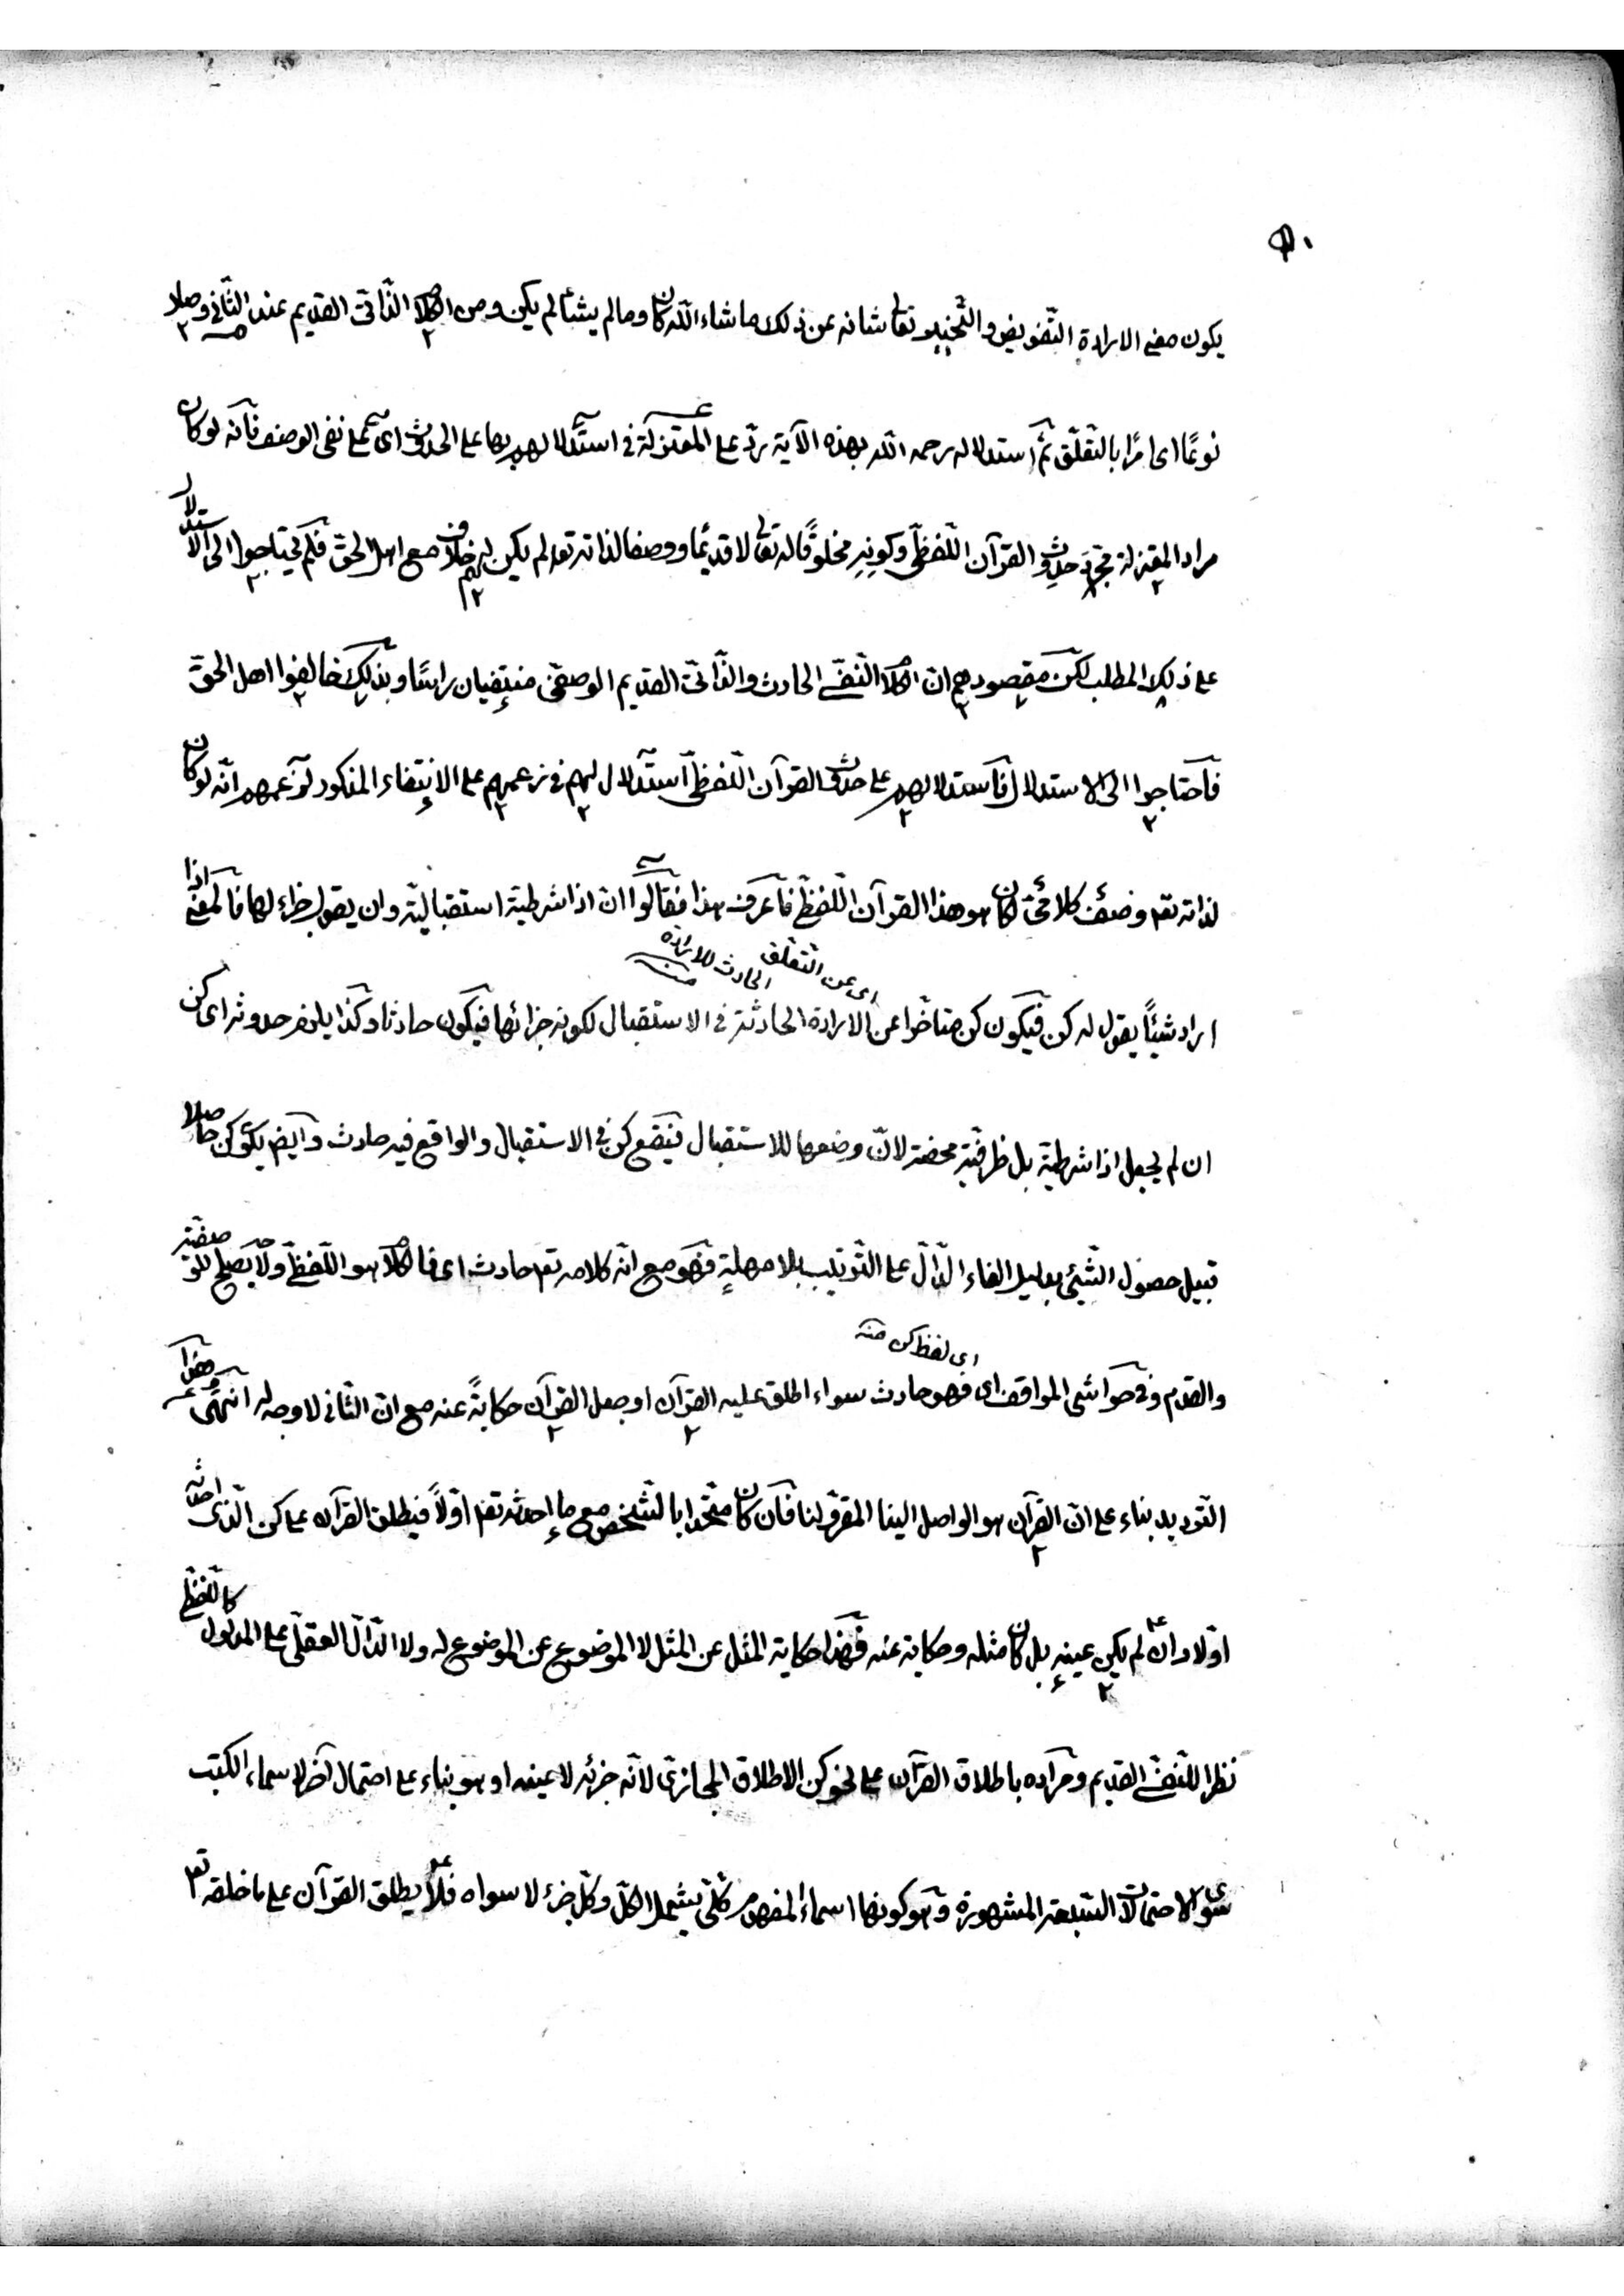 يكون معنى الارادة التفويض والتخيير تعالى شانه عن ذلك ما شاء الله كان وما لم يشأ لم يكن ومن الكلام الذاتى القديم عند الثانى وصار
نوعا اى امرا بالتعلق ثم استدلاله رحمه الله بهذه الآية رد على المعتزلة فى استدلالهم بها على الحدوث اى على نفى الوصف فانه لو كان
مراد المعتزلة مجرد حدوث القرآن اللفظى وكونه مخلوقا له تعالى لا قديما ووصفا لذاته تعـ لم يكن لهم خلاف مع اهل الحق فلم يحتاجوا الى الاستدلال
على ذلك المطلب لكن مقصودهم ان الكلام النفسى الحادث والذاتى القديم الوصفى منتفيان راسا وبذلك خالفوا اهل الحق
فاحتاجوا الى الاستدلال فاستدلالهم على حدوث القرآن اللفظى استدلال لهم فى زعمهم على الانتفاء المذكور لزعمهم انه لو كان
لذاته تعـ وصف كلامى لكان هو هذا القرآن اللفظى فاعرف بهذا فقالوا ان اذا شرطية استقبالية وان يقول جزاء لها فالمعنى اذا
اى عن التعلق الحادث للارادة منه
اراد شيئا يقول له كن فيكون كن متاخرا عن الارادة الحادثة فى الاستقبال لكونه جزائها فيكون حادثا وكذا يلزم حدوثه اى كن
ان لم يجعل اذا شرطية بل ظرفية محضة لان وضعها للاستقبال فيقع كن فى الاستقبال والواقع فيه حادث وايضا يكون كن حاصلا
قبيل حصول الشيئ بدليل الفاء الدال على الترتيب بلا مهلة فهو مع انه كلامه تعـ حادث اى فالكلام هو اللفظى ولا يصلح للوصفية
اى لفظ كن منه
والقدم وفى حواشى المواقف اى فهو حادث سواء اطلق عليه القرآن او جعل القرآن حكاية عنه مع ان الثانى لا وجه له انتهى وهذا
الترديد بناء على ان القرآن هو الواصل الينا المقرؤ لنا فان كان متحدا بالتشخص مع ما احدثه تعـ اولا فيطلق القرآن على كن الذى احدثه
اولا وان لم يكن عينه بل كان مثله وحكاية عنه فهذا حكاية المثل عن المثل لا الموضوع عن الموضوع له ولا الدال العقلى على المدلول كاللفظى
نظرا للنفسى القديم ومراده باطلاق القرآن على نحو كن الاطلاق المجازى لانه جزئه لا عينه او هو بناء على احتمال آخر لاسماء الكتب
سوى الاحتمالات السبعة المشهورة وهو كونها اسماء لمفهوم كلى يشمل الكل وكل جزء لا سواه فلا يطلق القرآن على ما خلقه تعـ